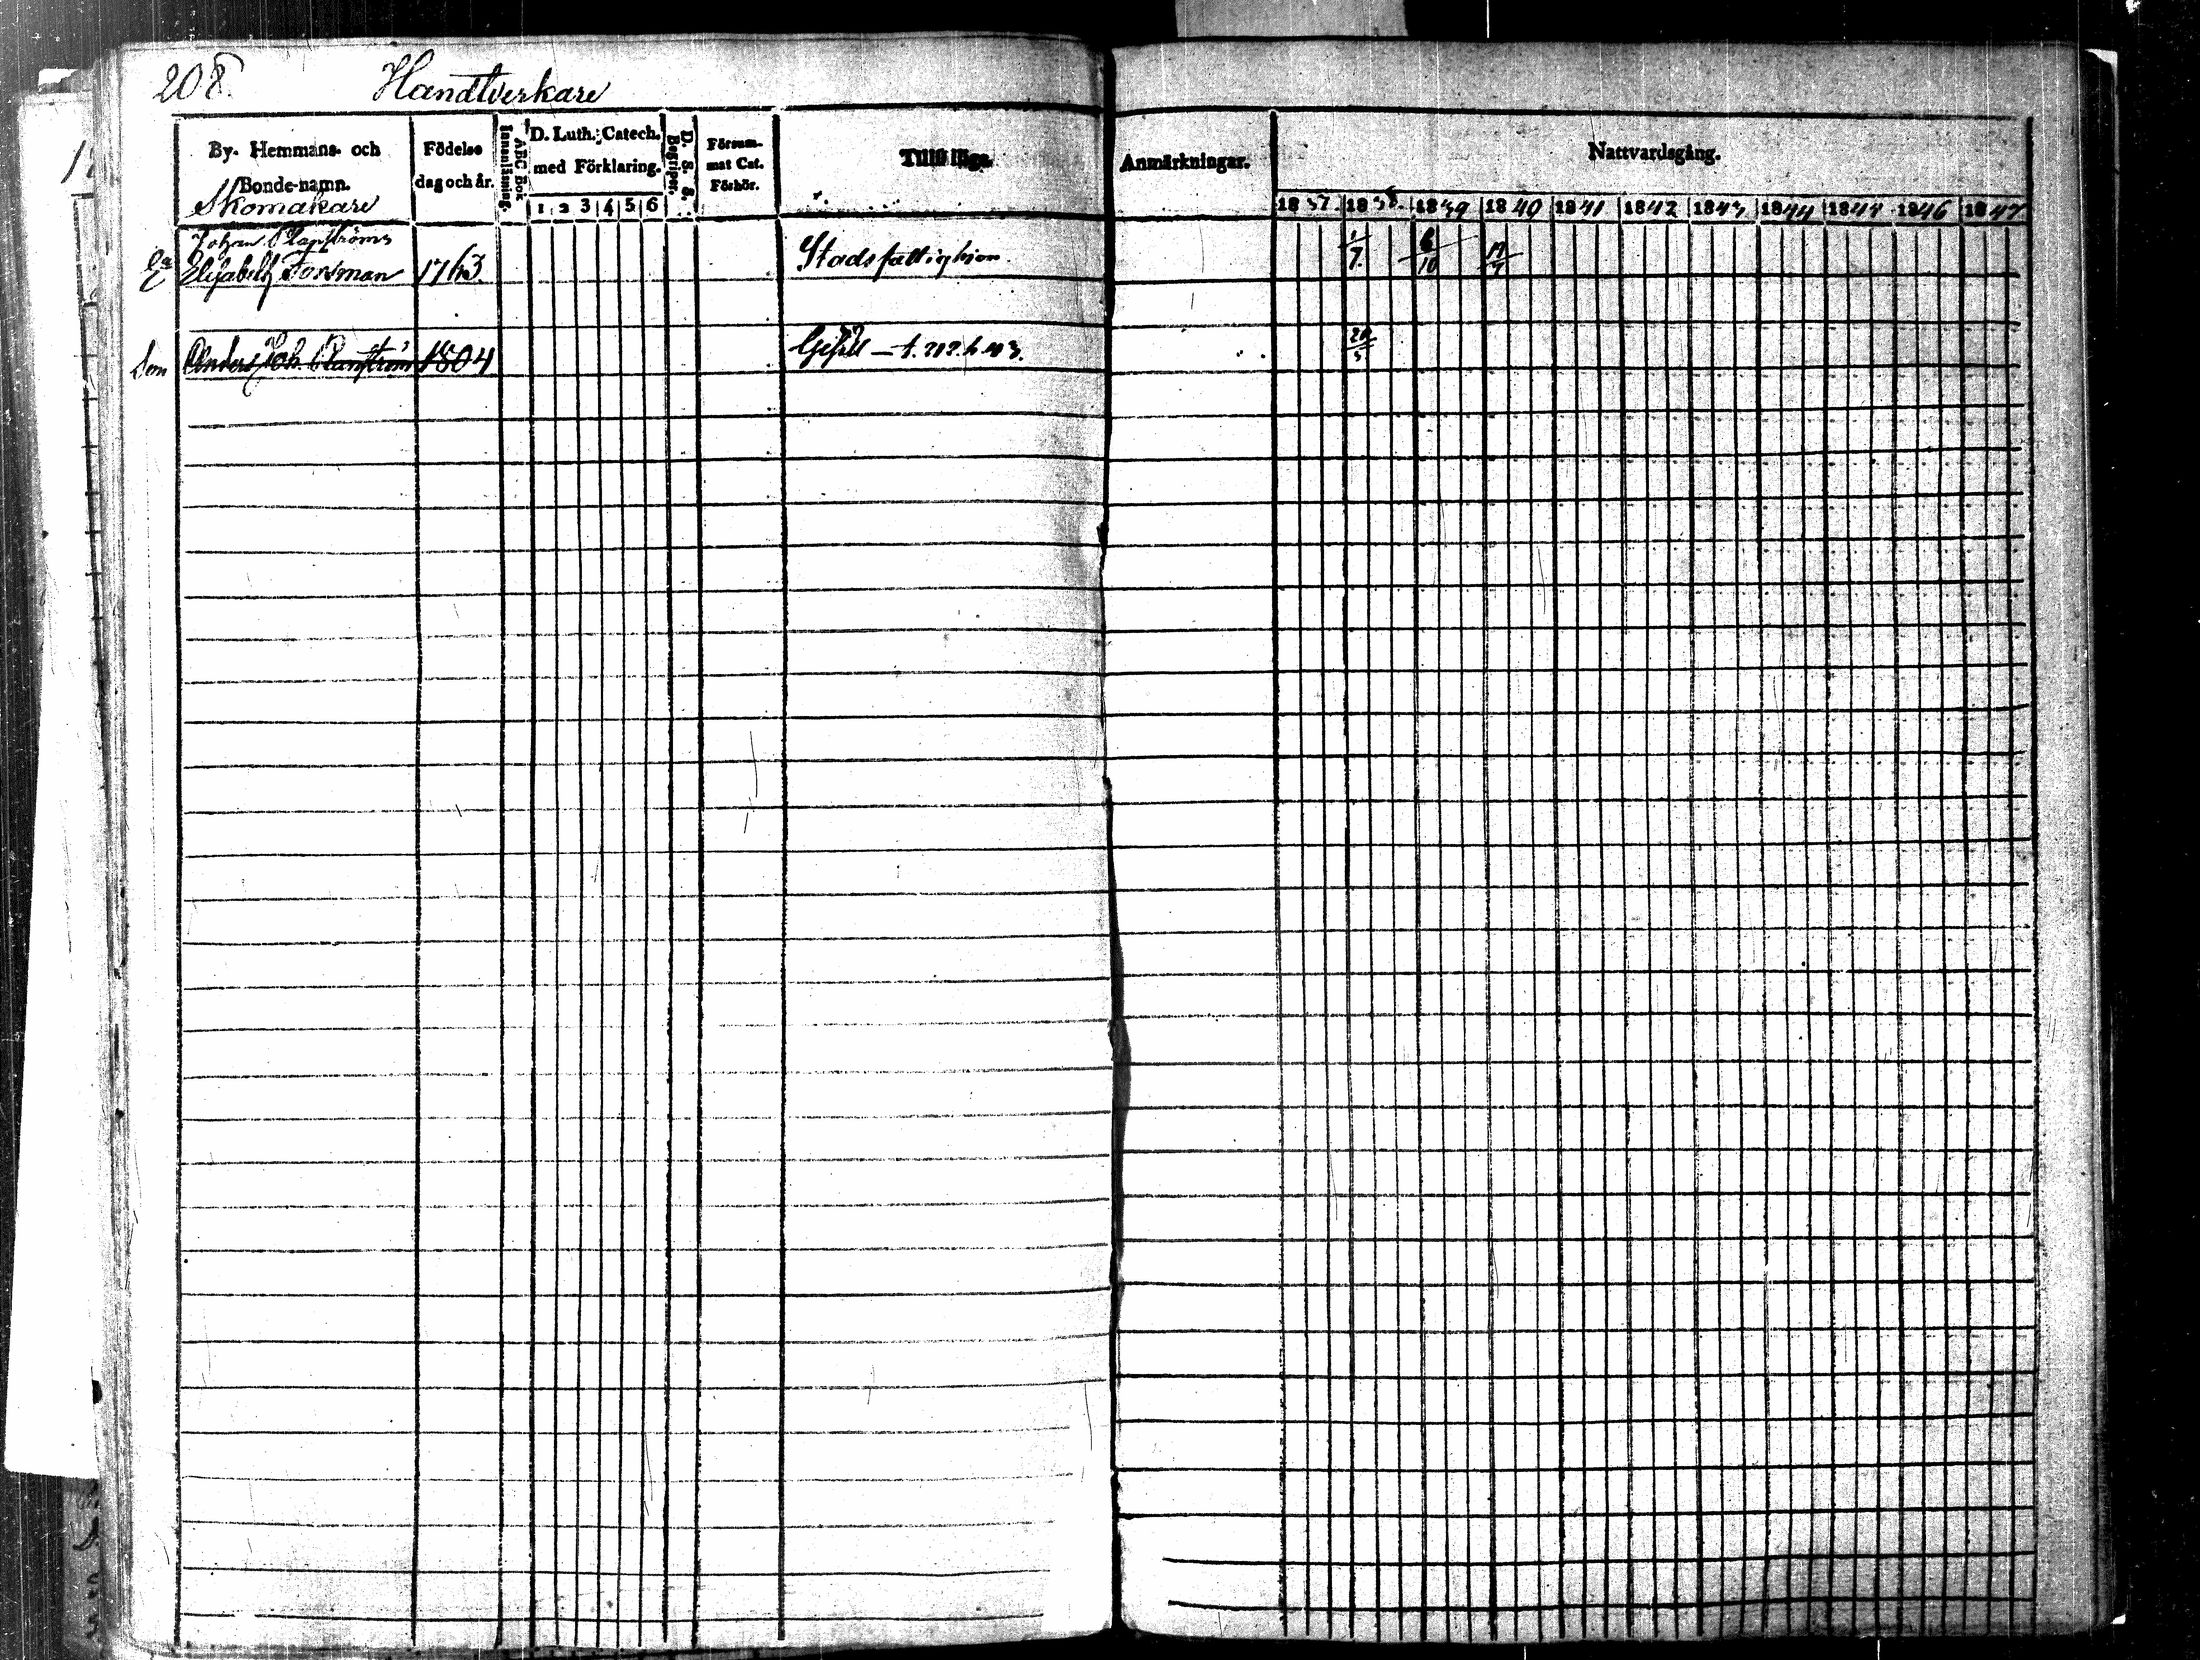 208.
Handtverkare
By- Hemmans- och
Bonde-namn.
Skomakare
Födelse
dag och år.
Innanläsning.
ABC Bok
D. Luth. Catech.
med Förklaring.
1 2 3 4 5 6
D. S. S.
Begriper.
Försum-
mat Cat.
Förhör.
Tillfälliga
Anmärkningar.
Nattvardsgång.
1837 1838 1839 1840 1841 1842 1843 1844 1844 1846 1847
Johan
Elisabeth Forsman 1763. Stadsfattighion 1/7. 6/10
Son Anders Joh. 1804 Gesäll